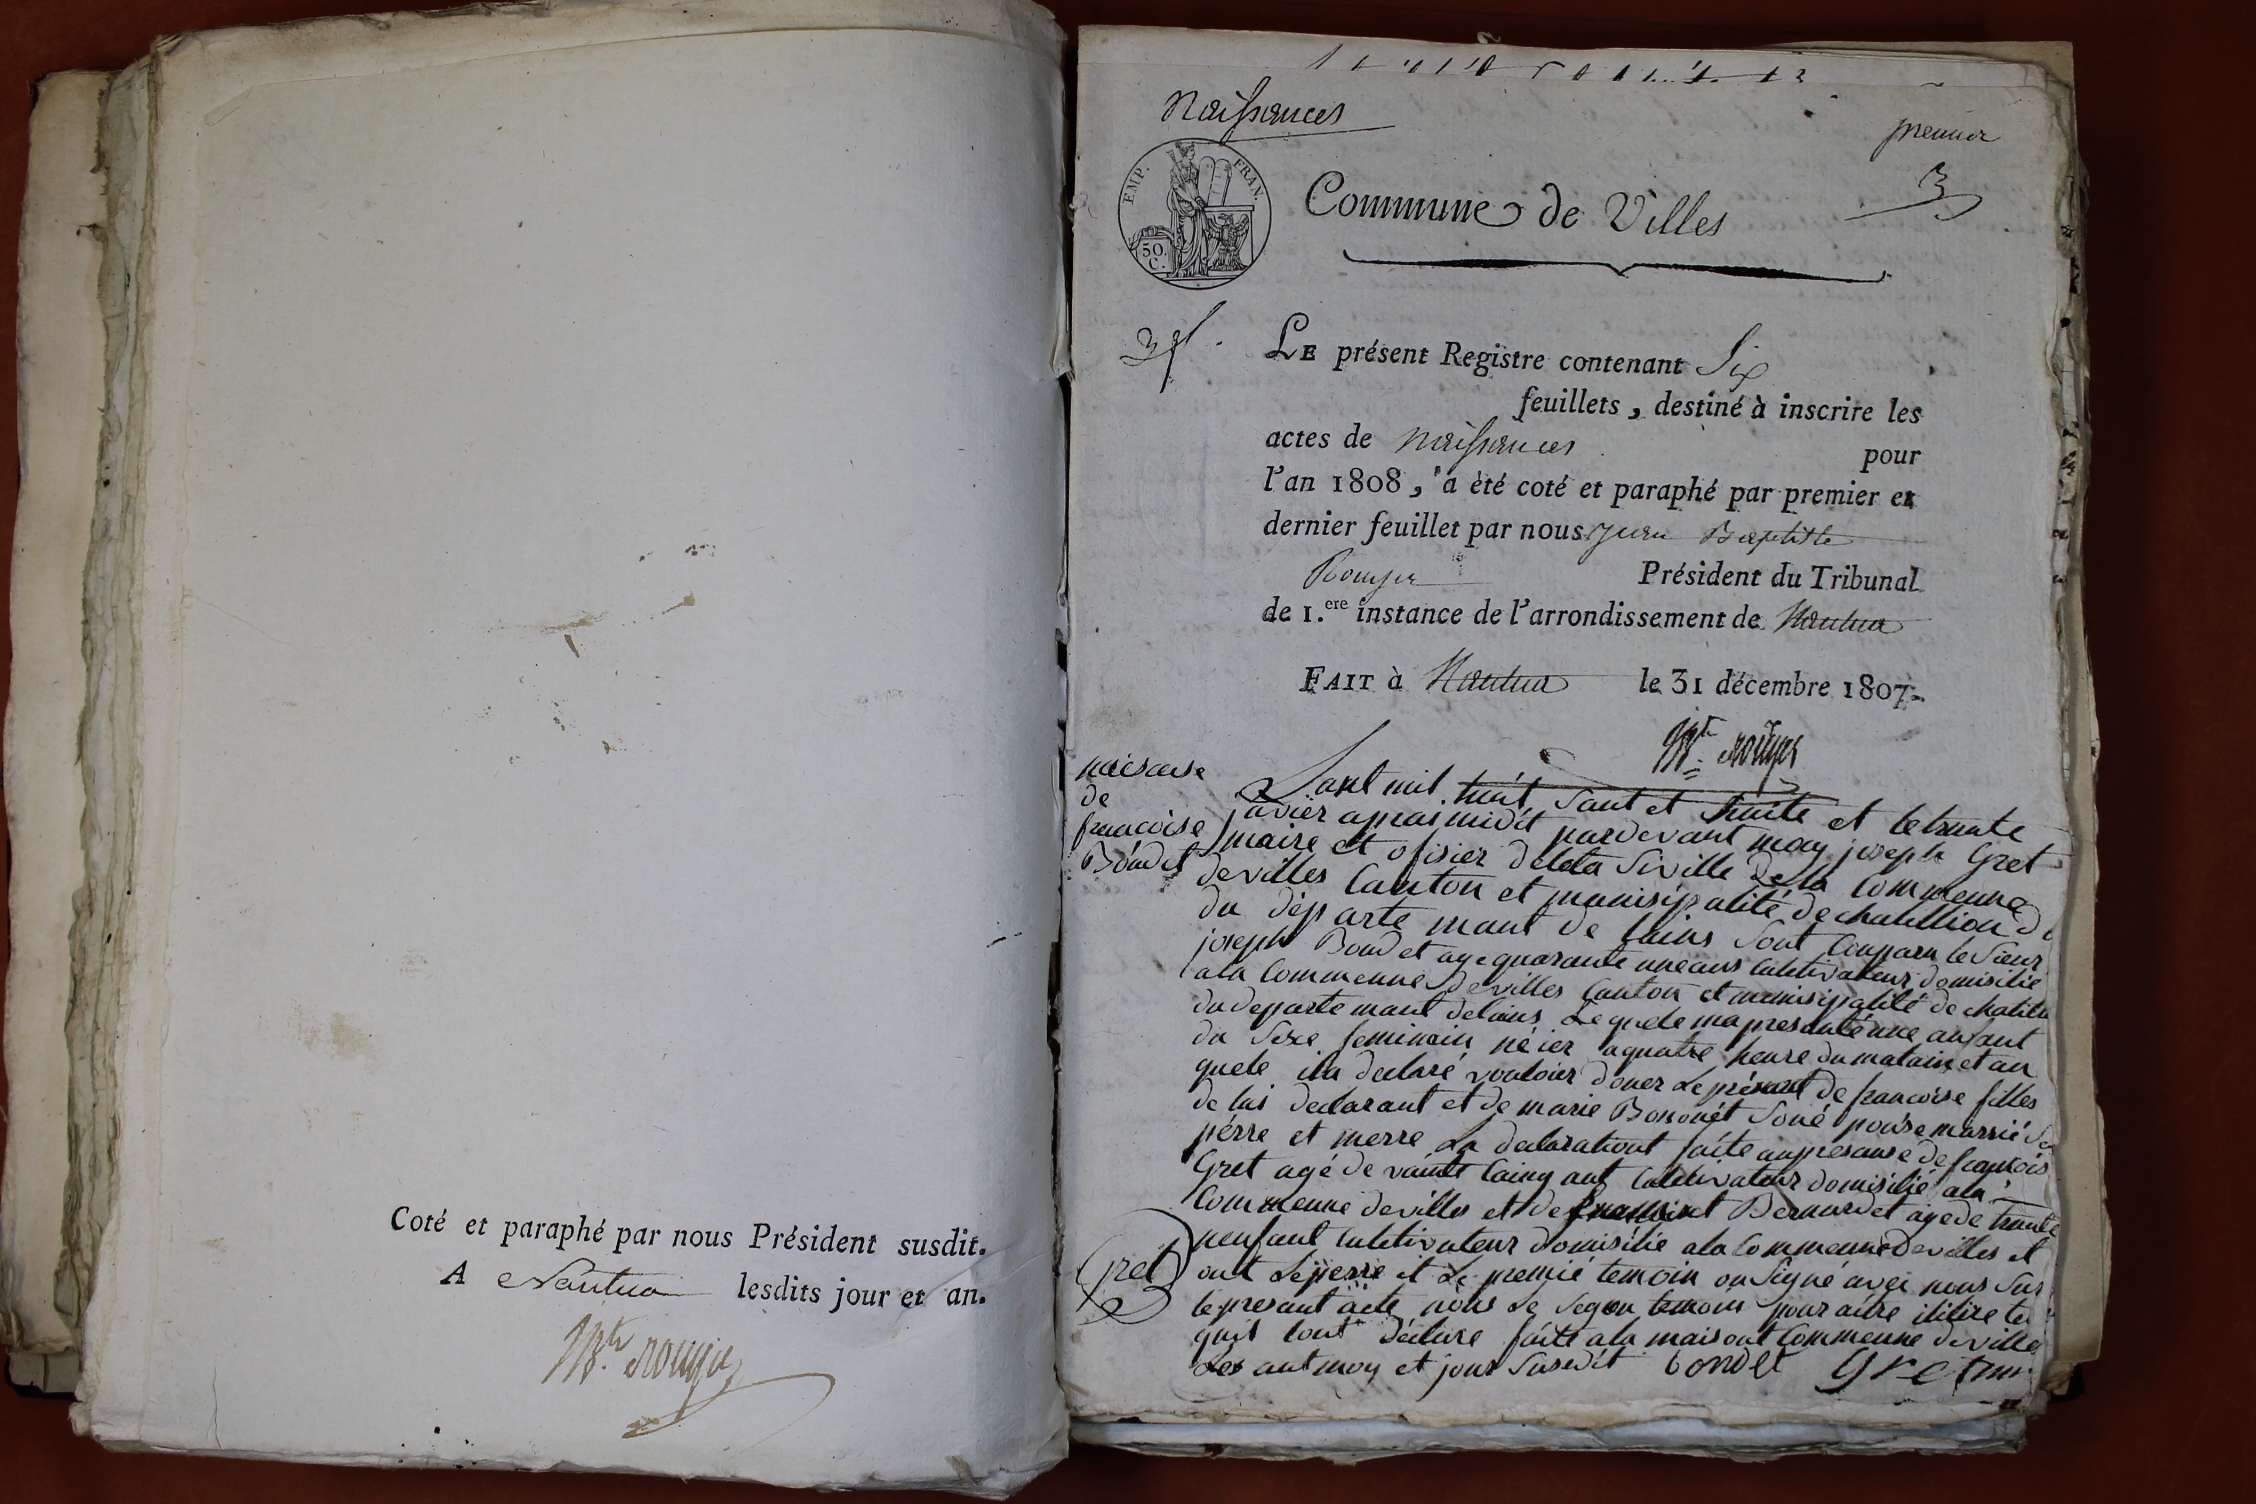 Coté et paraphé par nous Président susdit.
A Nantua lesdits jour et an.
Bte. rouyer
Naissances
premier
3
EMP. FRAN.
50.
C.
Commune de Villes
3 f.
LE présent Registre contenant Six
feuillets, destiné à inscrire les
actes de Naissances pour
l'an 1808, a été coté et paraphé par premier et
dernier feuillet par nous Jean Baptiste
Rouyer Président du Tribunal
de 1.ere instance de l'arrondissement de Nantua
FAIT à Nantua le 31 décembre 1807.
Bte. rouyer
naisanse
de
francoise
Bondet
Lant mil huit sant et huite et le trante
javier apraimidit pardevant moy joseph Gret
maire et ofisier deleta siville de la Commenne
de villes Canton et munisipalité de chatillion d
du departe mant de lains sont Conparu le sieur
joseph Bondet age quarante une ans cultivateur domisilié
ala Commenne de villes Canton et munisipalité de chatill
du departe mant delains Lequele ma presenté une anfant
du sexe feminain né ier aquatre heure du matain et au
quele ila declaré vouloier doner le prénom de francoise filles
de lui declarant et de marie Bononét son é pouse marrié
pérre et merre La declarationt faite anpresanse de francois
Gret agé de vainte Cainq ant Cultivateur domisilié ala
Commenne de villes et de Bernardet agé de trante
neufant Cultivateur domisilié ala Commenne de villes et
ont le perre et le premié temoin on signé avec nous sur
le presant acte nons le segon temoin pour aitre ilitire te
quil lont déclare faite ala maisont Commenne de ville
Les ant moy et jour susedit bondet Gret mr
Gret